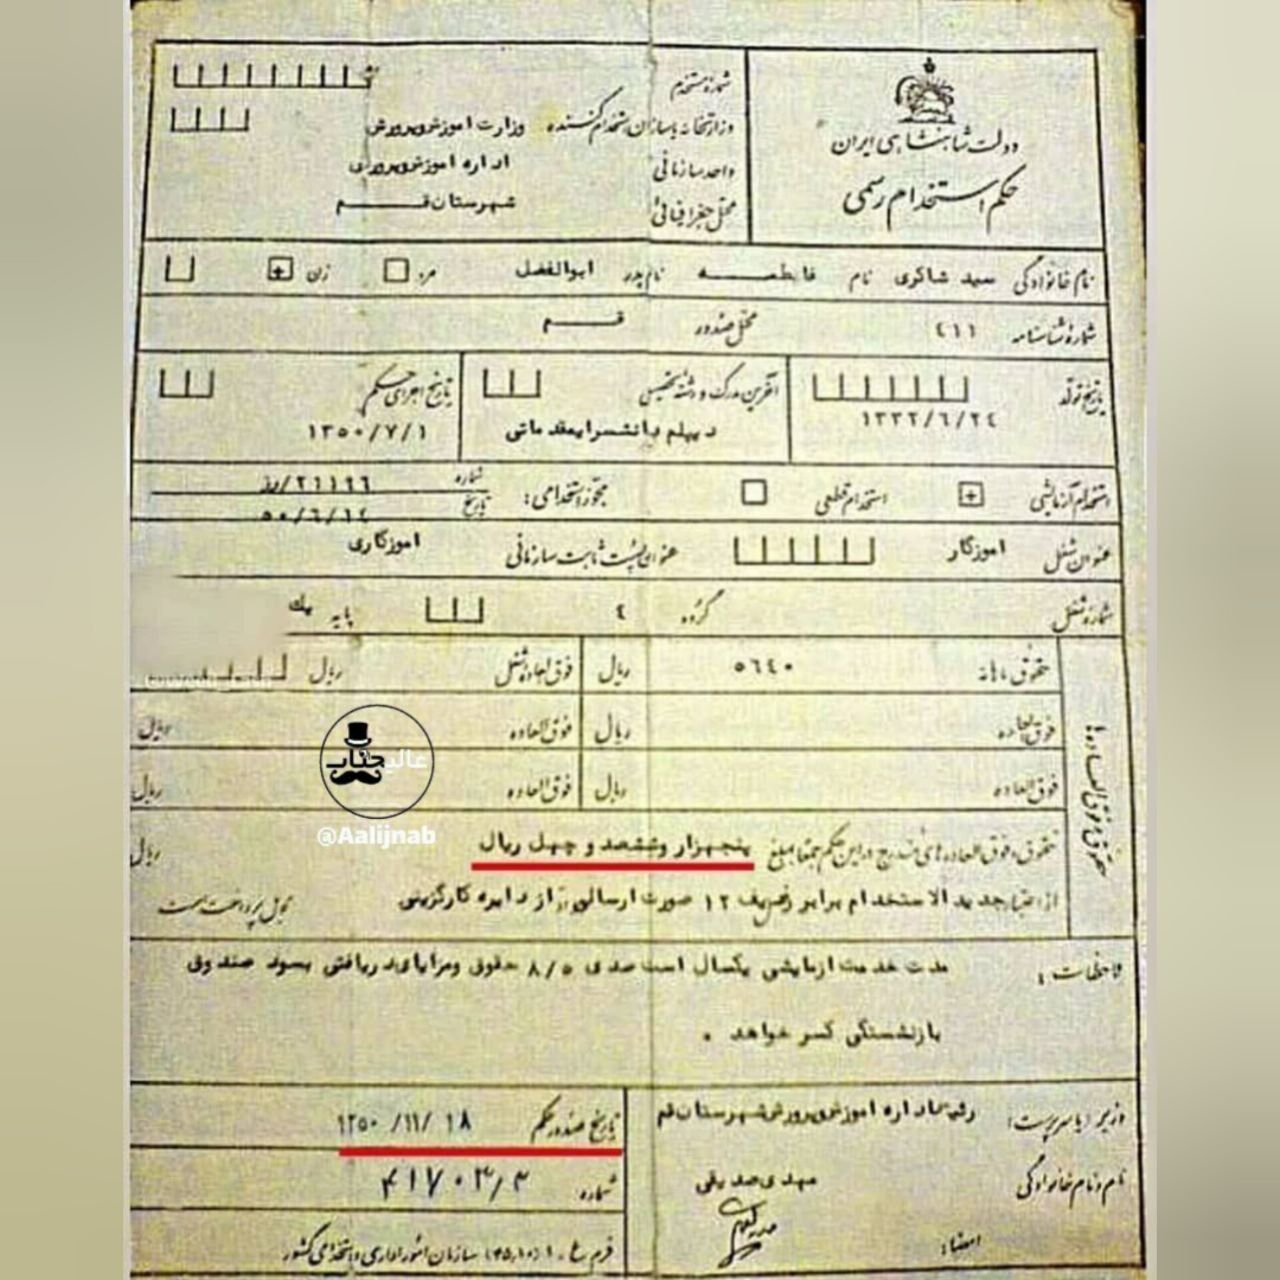 دولت شاهنشاهی ایران
حکم استخدام رسمی
شماره مستخدم
وزارتخانه یا سازمان استخدام کننده وزارت اموزش وپرورش
واحد سازمانی اداره اموزش وپرورش
محل جغرافیائی شهرستان قم
نام خانوادگی سید شاکری نام فاطمه نام پدر ابوالفضل مرد زن
شماره شناسنامه ٤١١ محل صدور قم
تاریخ تولد ١٣٣٢/٦/٢٤
آخرین مدرک و رشته تحصیلی
دیپلم دانشسرایمقدماتی
تاریخ اجرای حکم
١٣٥٠/٧/١
استخدام آزمایشی استخدام قطعی مجوز استخدامی: شماره ٢١١٩٦/رز
تاریخ ٥٠/٦/١٤
عنوان شغل اموزگار عنوان پست ثابت سازمانی اموزگاری
شماره شغل گروه ٤ پایه یك
حقوق و فوق العاده ها
حقوق ماهانه ٥٦٤٠ ریال فوق العاده شغل ریال
فوق العاده ریال فوق العاده ریال
فوق العاده ریال فوق العاده ریال
حقوق و فوق العاده های مندرج در این حکم جمعا بمبلغ پنجهزار وششصد و چهل ریال ریال
از اعتبار جدید الاستخدام برابر ردیف ١٢ صورت ارسالی از دایره کارگزینی قابل پرداخت است
ملاحظات : مدت خدمت ازمایشی یکسال است صدی ٨/٥ حقوق ومزایای دریافتی بسود صندوق
بازنشستگی کسر خواهد .
وزیر (یا سرپرست): رئیس اداره اموزش وپرورش شهرستان قم
نام و نام خانوادگی مهدی صدیقی
امضاء:
تاریخ صدور حکم ١٣٥٠/١١/١٨
شماره ۴١٧٠٣/٣
سازمان امور اداری و استخدامی کشور
عالیجناب
@Aalijnab